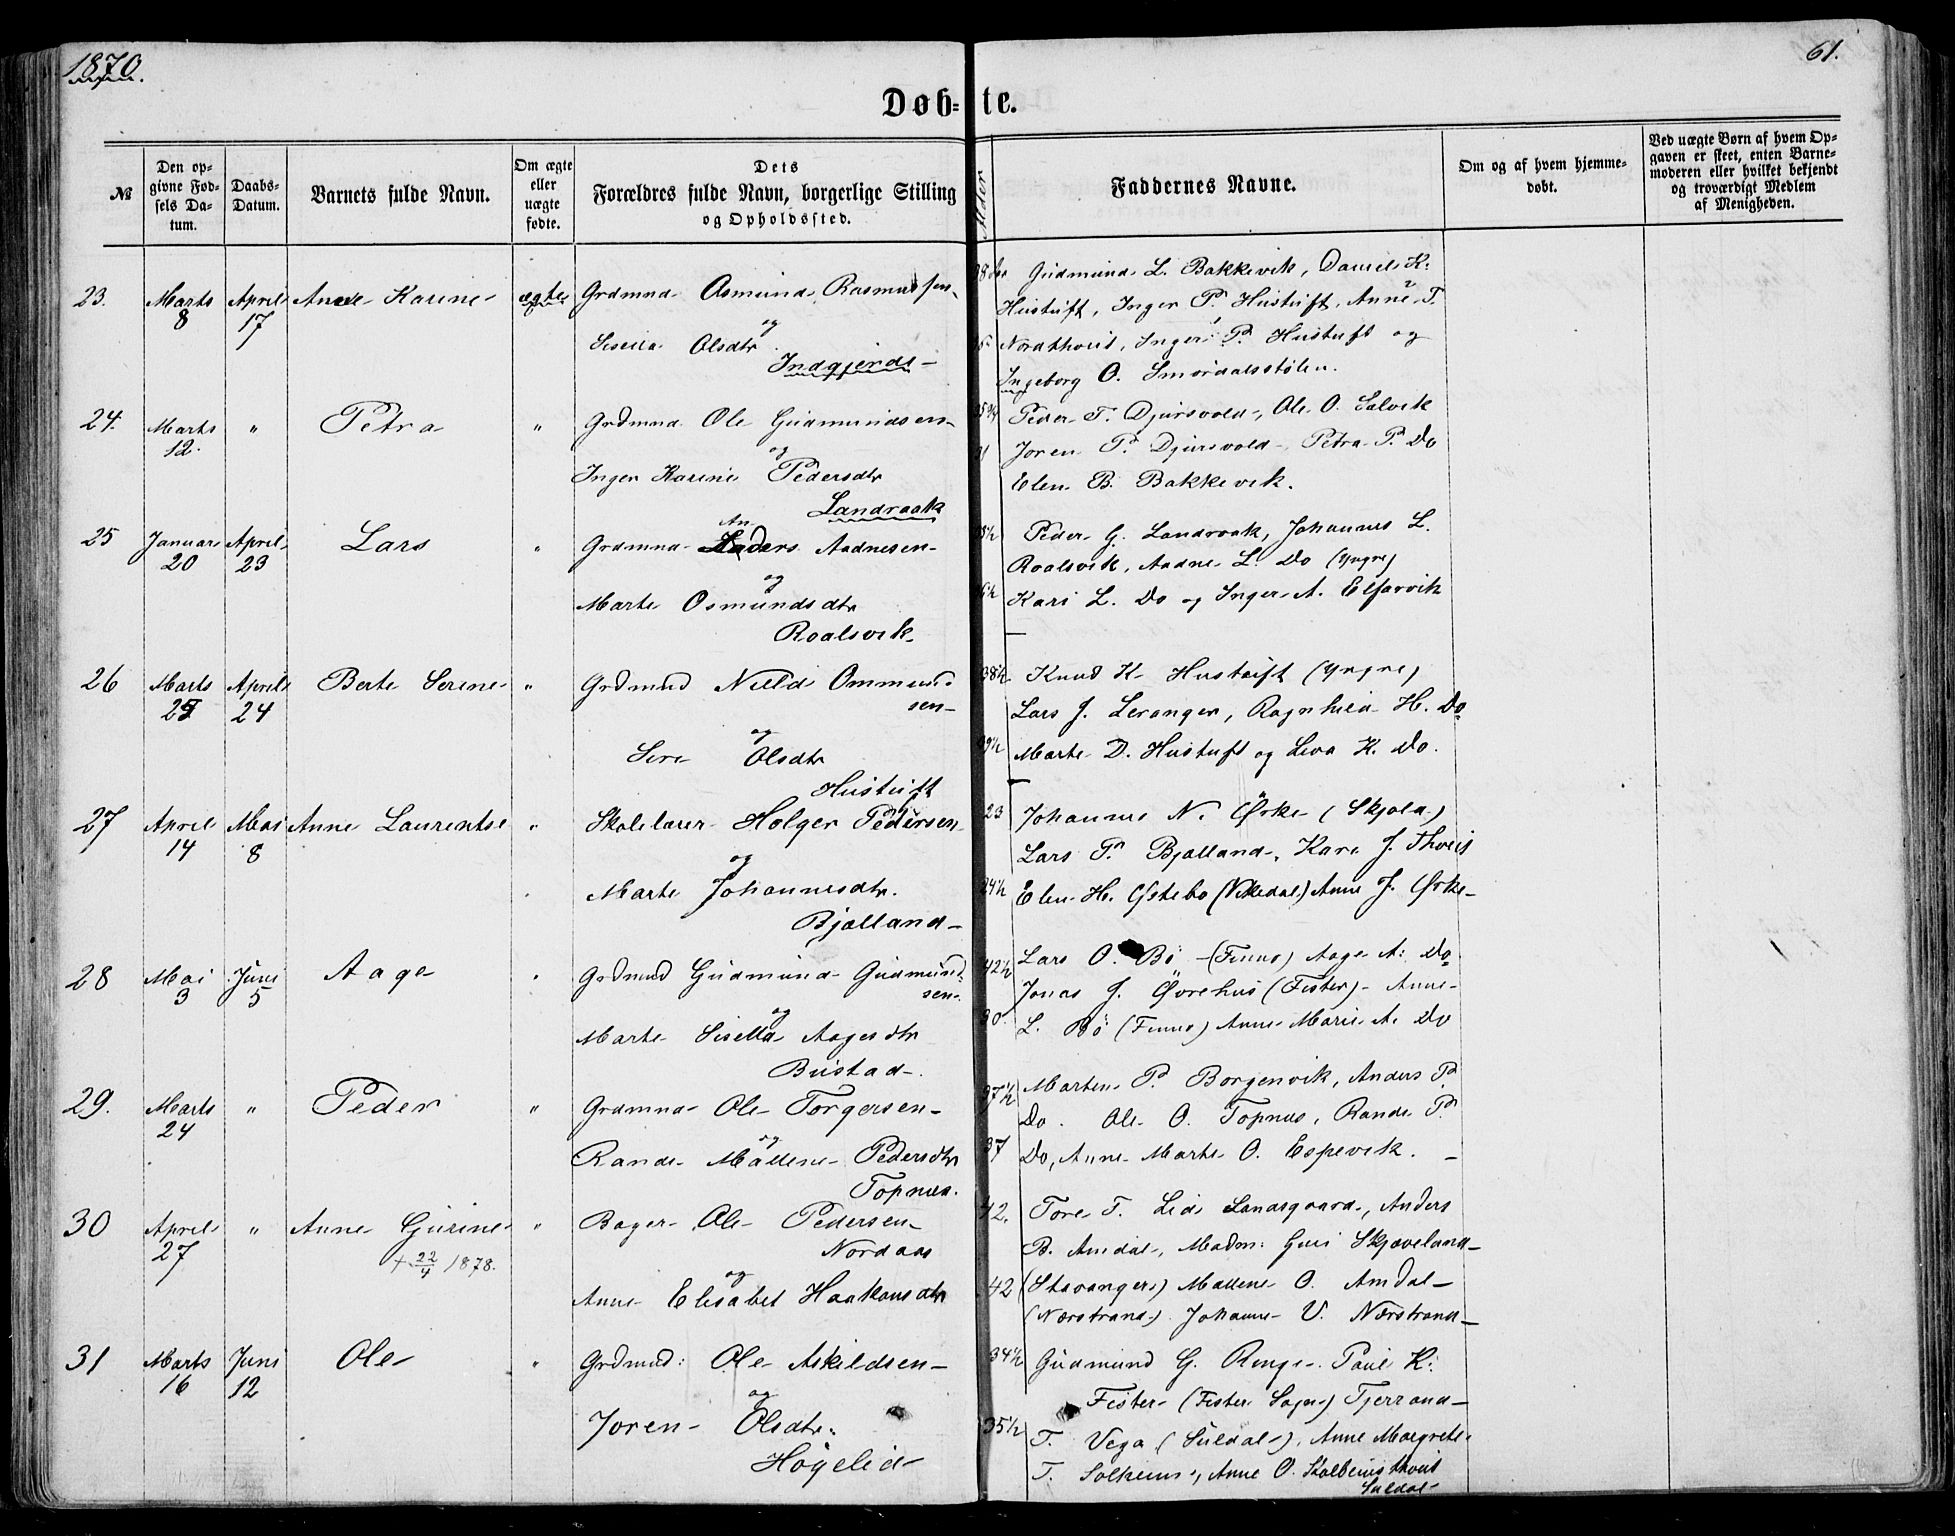 1870.
61.
Døb- te.
No
Den op-
givne Fød-
sels Da-
tum.
Daabs-
Datum.
Barnets fulde Navn.
Om ægte
eller
uægte
fødte.
Dets
Forældres fulde Navn, borgerlige Stilling
og Opholdssted.
Alder
Faddernes Navne.
Om og af hvem hjemme-
døbt.
Ved uægte Børn af hvem Op-
gaven er skeet, enten Barne-
moderen eller hvilket bekjendt
og troværdigt Medlem
af Menigheden.
23. Marts 8 April 17 Anne Karine ægte Grdmnd Osmund Rasmussen
og
Sisella Olsdtr
Indgjerde
Gudmund L. Bakkevik, Daniel K.
Hustuft, Inger P. Hustuft, Anne T.
Nordthveit, Inger P. Hustuft og
Ingeborg O. Smørdalsstølen.
24. Marts 12. " Petra " Grdmnd Ole Gudmundsen
og
Inger Karine Pedersdtr
Landraak
Peder T. Djursvold, Ole O. Salvik
Joren P. Djursvold Petra P. Do
Elen B. Bakkevik.
25 Januar 20 April 23 Lars " Grdmnd Anders Aadnesen
og
Marte Osmundsdtr
Roalsvik
Peder G. Landraak, Johannes L.
Roalsvik, Aadne L. Do (Yngre)
Kari L. Do og Inger A. Elfarvik
26 Marts 25 April 24 Berte Serine " Grdmnd Nills Ommund
sen
og
Sere Olsdtr
Hustuft
38½ Knud K. Hustuft (Yngre)
Lars J. Leranger, Ragnhild H. Do
39½ Marte D. Hustuft og Liva K. Do.
27 April 14 Mai 8 Anne Laurentse " Skolelærer Holger Pedersen
og
Marte Johannesdtr.
Bjælland
23 Johannes N. Ørke (Skjold)
Lars P. Bjælland, Kari J. Thveit
24½ Elen H. Østebø (Vikedal) Anne J. Ørke
28 Mai 3 Juni 5 Aage " Grdmnd Gudmund Gudmund
sen
og
Marte Sisella Aagesdtr
Bustad.
42½ Lars O. Bø (Finnø) Aage A. Do
Jonas J. Øvrehus (Fister) Anne
30. L. Bø (Finnø) Anne Marie A. Do
29. Marts 24 " Peder " Grdmnd Ole Torgersen
og
Rande Mallene Pedersdtr
Topnes.
37½ Marten P. Borgenvik, Anders P.
Do. Ole O. Topnes, Rande P.
37 Do, Anne Marte O. Espevik.
30 April 27 " Anne Gurine " Bager Ole Pedersen
+ 22/4 1878. Nordaas
og
Anne Elisabet Haakonsdtr
42. Tore T. Lid Landsgaard, Anders
B. Amdal, Madm: Guri Skjæveland
42 (Stavanger) Mallene O. Amdal
(Nærstrand) Johanne V. Nærstrand
31 Marts 16 Juni 12 Ole " Grdmnd: Ole Askildsen
og
Joren Olsdtr.
Høgelid
34½ Gudmund G. Renge. Paul K.
Fister (Fister Sogn) Tjerrand
35½ T. Vega (Suldal), Anne Margrete
T. Solheim, Anne O. Kolbeinsthveit
Suldal